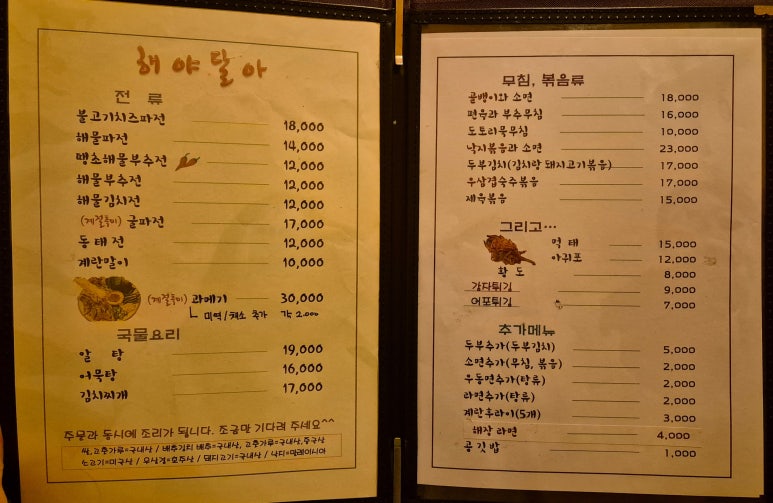 해야달아
전 류
불고기치즈파전 18,000
해물파전 14,000
땡초해물부추전 12,000
해물부추전 12,000
해물김치전 12,000
(계절특미) 굴파전 17,000
동 태 전 12,000
계란말이 10,000
(계절특미) 과메기 30,000
ㄴ 미역/채소 추가 각 2.000
국물요리
알 탕 19,000
어묵탕 16,000
김치찌개 17,000
주문과 동시에 조리가 됩니다. 조금만 기다려 주세요^^
쌀,고추가루=국내산 / 배추김치 배추=국내산, 고추가루=국내산,중국산
소고기=미국산 / 우삼겹=호주산 / 돼지고기=국내산 / 낙지=말레이시아
무침, 볶음류
골뱅이와 소면 18,000
편육과 부추무침 16,000
도토리묵무침 10,000
낙지볶음과 소면 23,000
두부김치(김치랑 돼지고기볶음) 17,000
우삼겹숙주볶음 17,000
제육볶음 15,000
그리고…
먹 태 15,000
아귀포 12,000
황 도 8,000
감자튀김 9,000
어포튀김 7,000
추가메뉴
두부추가(두부김치) 5,000
소면추가(무침, 볶음) 2,000
우동면추가(탕류) 2,000
라면추가(탕류) 2,000
계란후라이(5개) 3,000
해장 라면 4,000
공깃밥 1,000